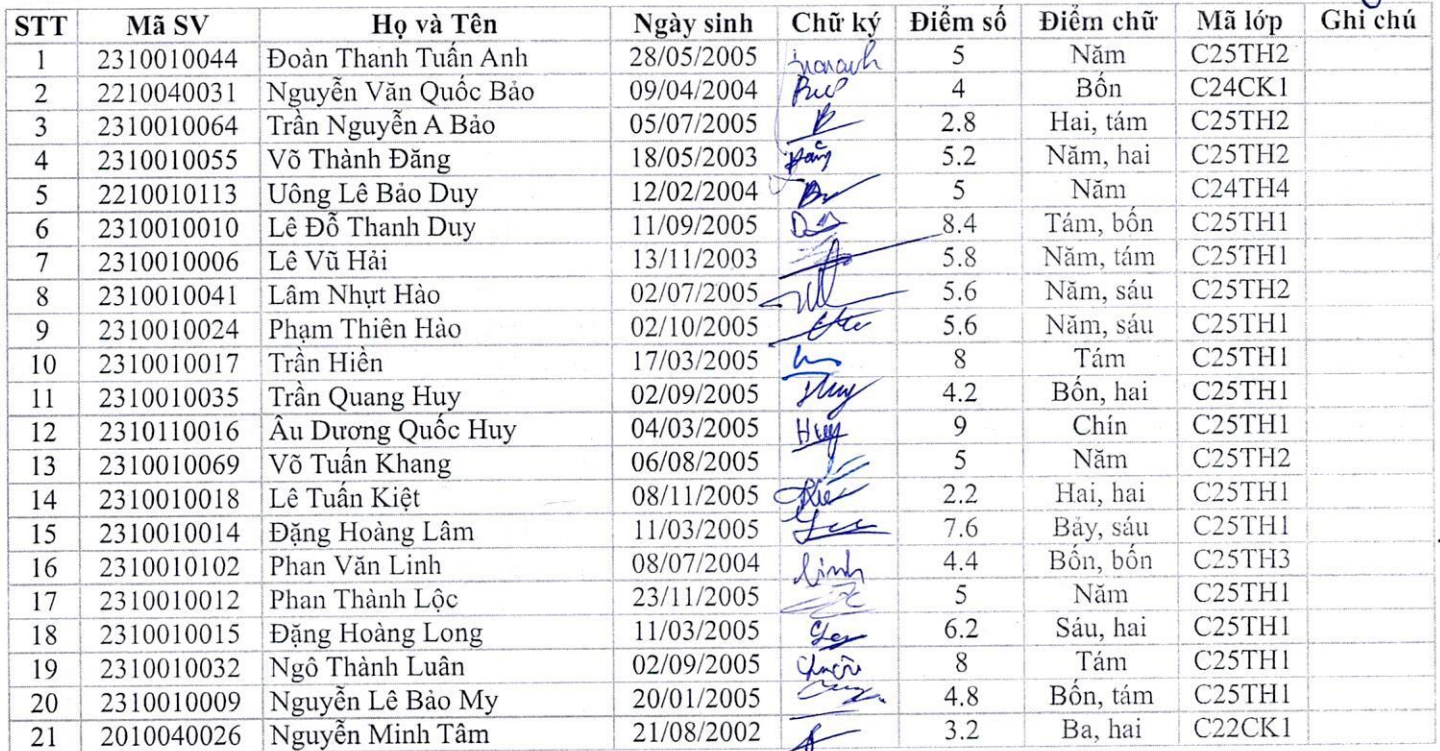 STT Mã SV Họ và Tên Ngày sinh Chữ ký Điểm số Điểm chữ Mã lớp Ghi chú
1 2310010044 Đoàn Thanh Tuấn Anh 28/05/2005 5 Năm C25TH2
2 2210040031 Nguyễn Văn Quốc Bảo 09/04/2004 4 Bốn C24CK1
3 2310010064 Trần Nguyễn A Bảo 05/07/2005 2.8 Hai, tám C25TH2
4 2310010055 Võ Thành Đăng 18/05/2003 5.2 Năm, hai C25TH2
5 2210010113 Uông Lê Bảo Duy 12/02/2004 5 Năm C24TH4
6 2310010010 Lê Đỗ Thanh Duy 11/09/2005 8.4 Tám, bốn C25TH1
7 2310010006 Lê Vũ Hải 13/11/2003 5.8 Năm, tám C25TH1
8 2310010041 Lâm Nhựt Hào 02/07/2005 5.6 Năm, sáu C25TH2
9 2310010024 Phạm Thiên Hào 02/10/2005 5.6 Năm, sáu C25TH1
10 2310010017 Trần Hiền 17/03/2005 8 Tám C25TH1
11 2310010035 Trần Quang Huy 02/09/2005 Huy 4.2 Bốn, hai C25TH1
12 2310110016 Âu Dương Quốc Huy 04/03/2005 Huy 9 Chín C25TH1
13 2310010069 Võ Tuấn Khang 06/08/2005 5 Năm C25TH2
14 2310010018 Lê Tuấn Kiệt 08/11/2005 2.2 Hai, hai C25TH1
15 2310010014 Đặng Hoàng Lâm 11/03/2005 7.6 Bảy, sáu C25TH1
16 2310010102 Phan Văn Linh 08/07/2004 Linh 4.4 Bốn, bốn C25TH3
17 2310010012 Phan Thành Lộc 23/11/2005 5 Năm C25TH1
18 2310010015 Đặng Hoàng Long 11/03/2005 6.2 Sáu, hai C25TH1
19 2310010032 Ngô Thành Luân 02/09/2005 8 Tám C25TH1
20 2310010009 Nguyễn Lê Bảo My 20/01/2005 4.8 Bốn, tám C25TH1
21 2010040026 Nguyễn Minh Tâm 21/08/2002 3.2 Ba, hai C22CK1